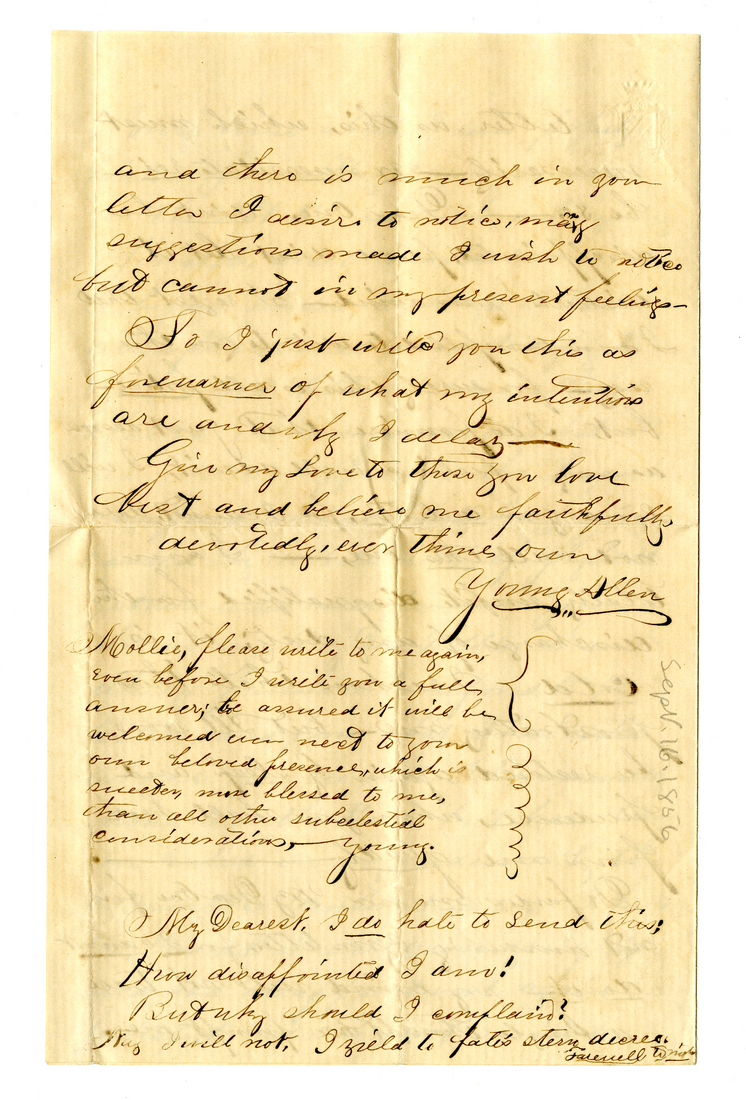 and there is much in your
letter I desire to notice, many
suggestions made I wish to notice
but cannot in my present feelings—
So I just write you this as
forewarner of what my intentions
are and why I delay—
Give my Love to those you love
best and believe me faithfully,
devotedly, ever thine own
Young Allen
Mollie, please write to me again,
even before I write you a full
answer; be assured it will be
welcomed even next to your
own beloved presence, which is
sweeter, more blessed to me,
than all other subcelestial
considerations,— Young.
Sept. 16. 1856
My Dearest. I do hate to send this;
How disappointed I am!
But why should I complain?
Nay I will not. I yield to fate's stern decree.
Farewell to night